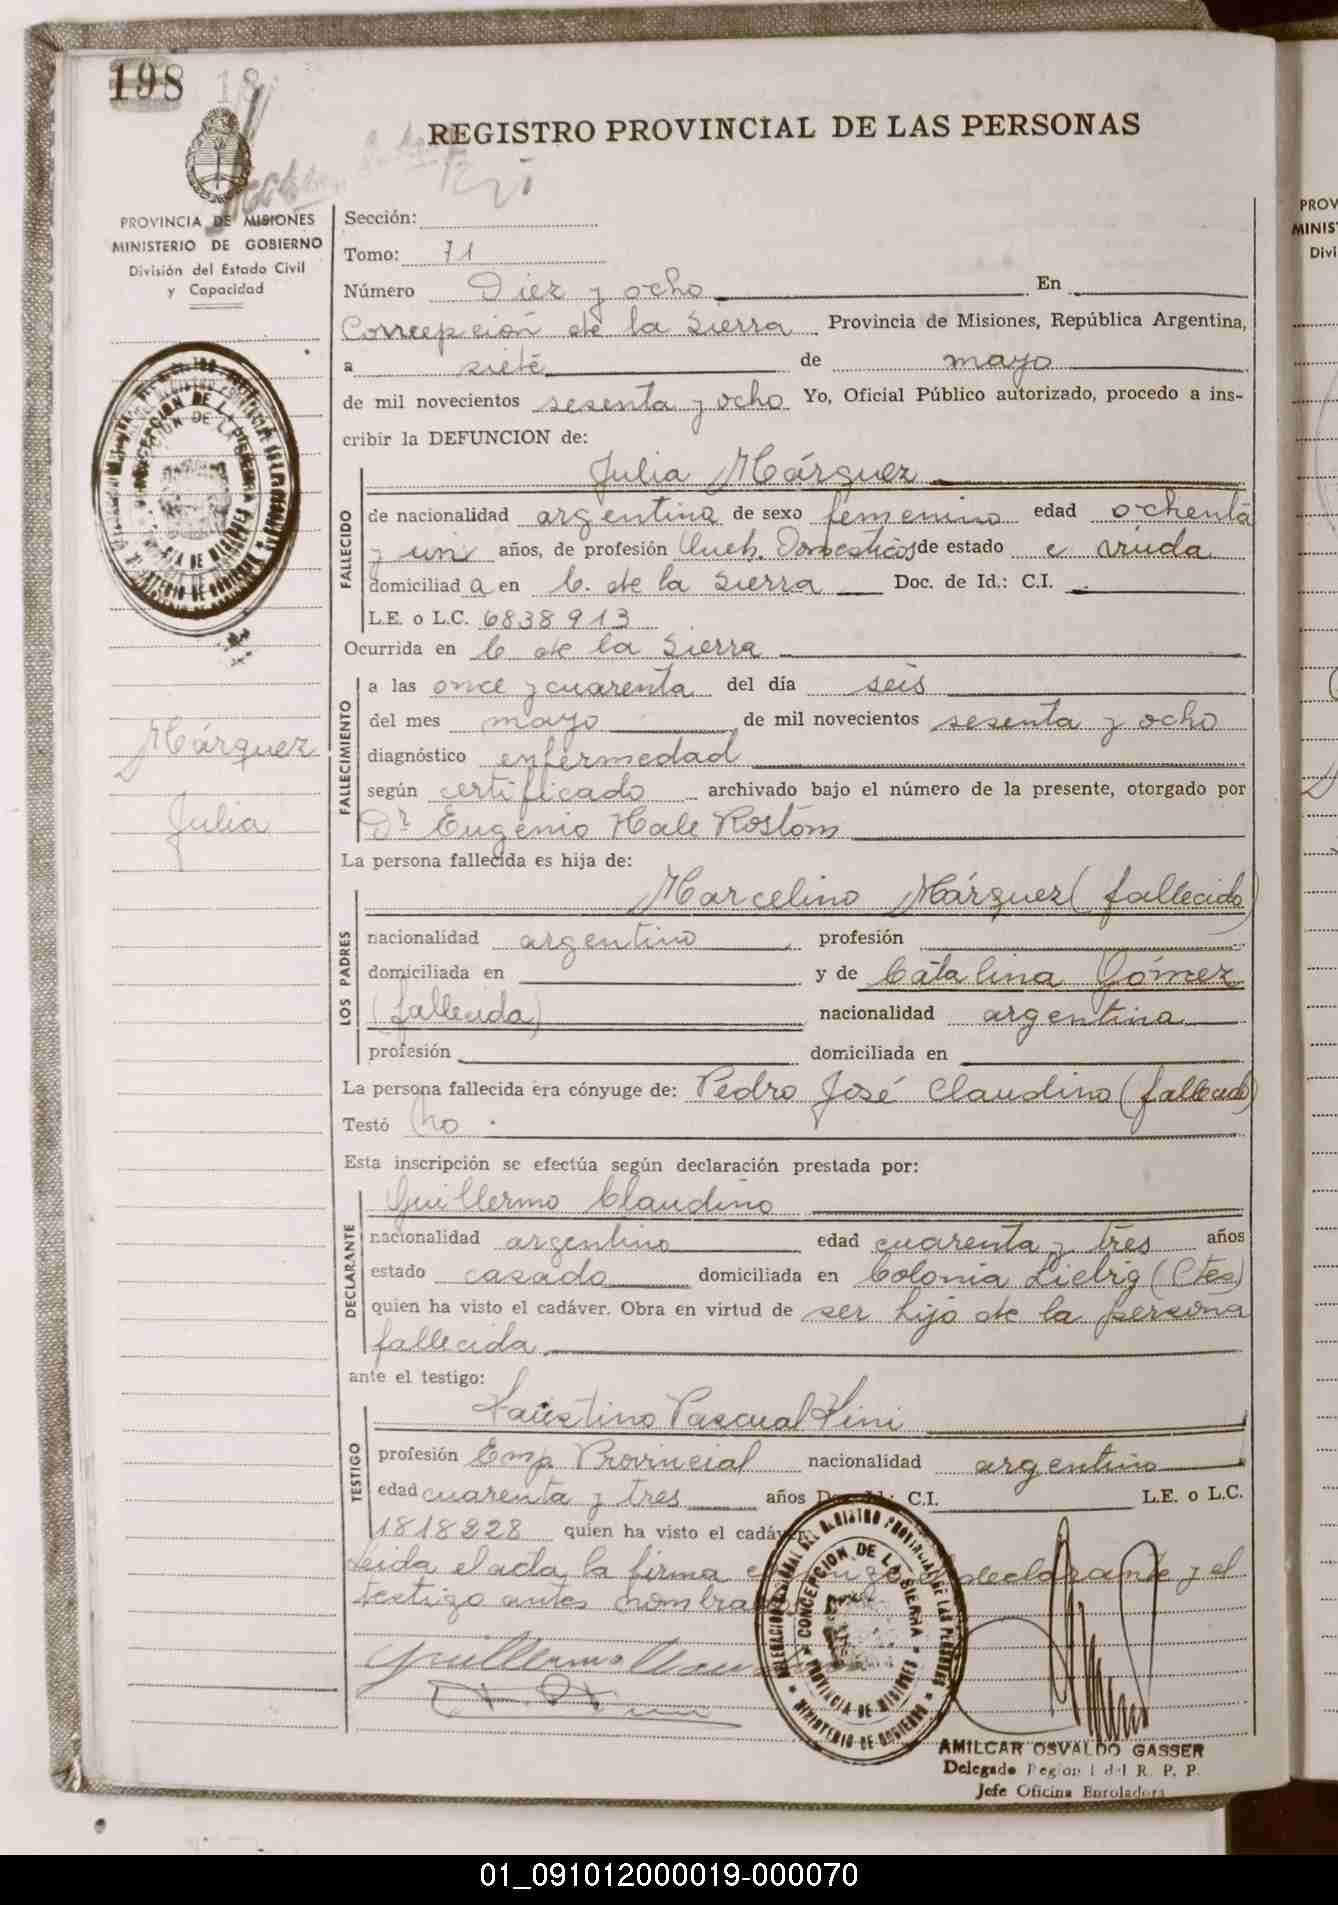 198 18
REGISTRO PROVINCIAL DE LAS PERSONAS
PROVINCIA DE MISIONES
MINISTERIO DE GOBIERNO
División del Estado Civil
y Capacidad
Sección:
Tomo: 71
Número Diez y ocho En
Concepción de la Sierra Provincia de Misiones, República Argentina,
a siete de mayo
de mil novecientos sesenta y ocho Yo, Oficial Público autorizado, procedo a ins-
cribir la DEFUNCION de:
FALLECIDO
Julia Márquez
de nacionalidad argentina de sexo femenino edad ochenta
y un años, de profesión Queh. Domésticos de estado c viuda
domiciliad a en C. de la Sierra Doc. de Id.: C.I.
L.E. o L.C. 6838913
Ocurrida en C de la Sierra
FALLECIMIENTO
a las once y cuarenta del día seis
del mes mayo de mil novecientos sesenta y ocho
diagnóstico enfermedad
según certificado archivado bajo el número de la presente, otorgado por
Dr Eugenio Hale Rostom
Márquez
Julia
La persona fallecida es hija de:
LOS PADRES
Marcelino Márquez (fallecido)
nacionalidad argentino profesión
domiciliada en y de Catalina Gómez
(fallecida) nacionalidad argentina
profesión domiciliada en
La persona fallecida era cónyuge de: Pedro José Claudino (fallecido)
Testó No
Esta inscripción se efectúa según declaración prestada por:
DECLARANTE
Guillermo Claudino
nacionalidad argentino edad cuarenta y tres años
estado casado domiciliada en Colonia Liebig (Ctes)
quien ha visto el cadáver. Obra en virtud de ser hijo de la persona
fallecida
ante el testigo:
TESTIGO
Faustino Pascual Kini
profesión Emp Provincial nacionalidad argentino
edad cuarenta y tres años C.I. L.E. o L.C.
1818228 quien ha visto el cadáver.
Leida el acta la firma declarante y el
testigo antes
Guillermo
DELEGACION REGIONAL DEL REGISTRO PROVINCIAL DE LAS PERSONAS
CONCEPCION DE LA SIERRA
PROVINCIA DE MISIONES
MINISTERIO DE GOBIERNO
AMILCAR OSVALDO GASSER
Delegado Region l del R. P. P.
Jefe Oficina Enroladora
PROV
MINIS
Divi
01_091012000019-000070